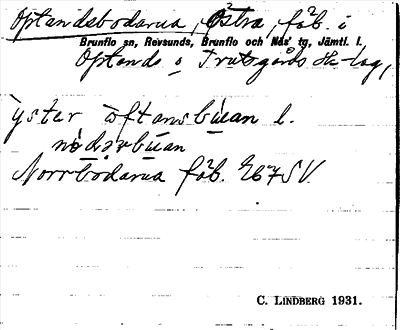 Optandsbodarna, Östra, fäb. i
Brunflo sn, Revsunds, Brunflo och Näs' tg, Jämtl. l.
Optands o Trutsgårds sk-lag,
yster öftansbúan l.
nòdərbúan
Norrbodarna fäb. 2675V.
C. LINDBERG 1931.